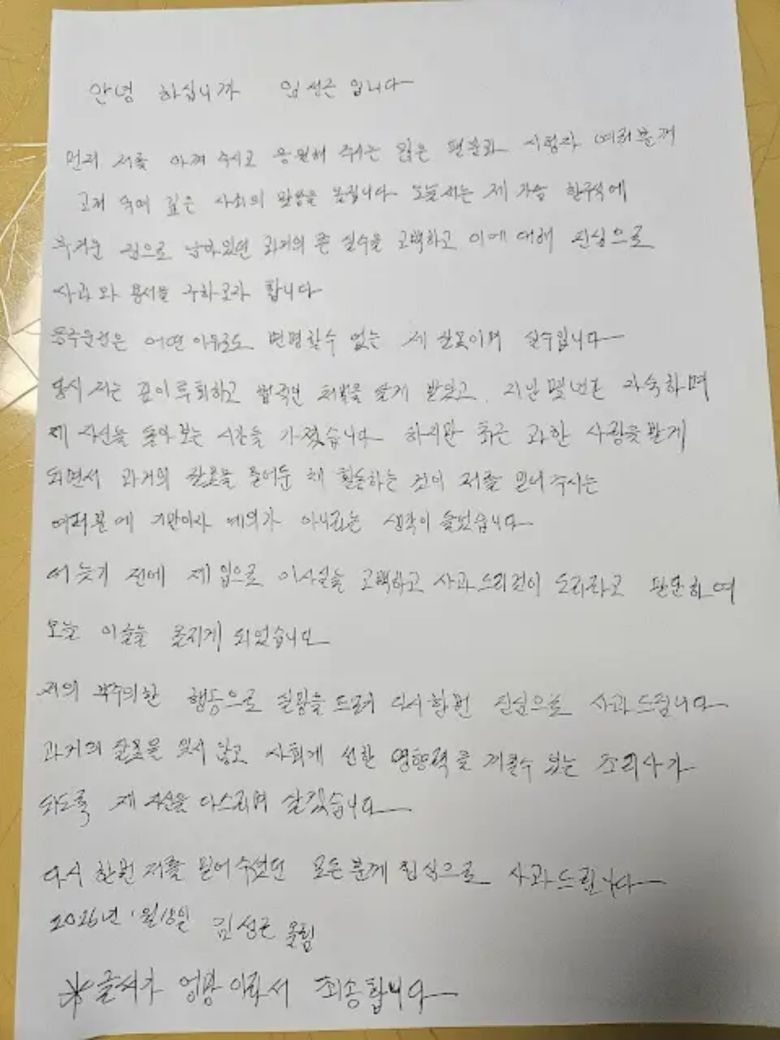 안녕 하십니까 임성근 입니다
먼저 저를 아껴 주시고 응원해 주시는 많은 팬분과 시청자 여러분께
고개 숙여 깊은 사죄의 말씀을 올립니다 오늘 저는 제 가슴 한구석에
무거운 짐으로 남아있던 과거의 큰 실수을 고백하고 이에 대해 진심으로
사과와 용서를 구하고자 합니다
음주운전은 어떤 이유로도 변명할수 없는 제 잘못이며 실수입니다
당시 저는 깊이 후회하고 법적인 처벌을 달게 받았고, 지난 몇년간 자숙하며
제 자신을 돌아보는 시간을 가졌습니다 하지만 최근 과한 사랑을 받게
되면서 과거의 잘못을 묻어둔 채 활동하는 것이 저를 믿어 주시는
여러분에 기만이자 예의가 아니라는 생각이 들었습니다
더 늦기 전에 제 입으로 이사실을 고백하고 사과드리것이 도리라고 판단하여
오늘 이글을 올리게 되었습니다
저의 부주의한 행동으로 실망을 드려 다시한번 진심으로 사과드립니다
과거의 잘못을 잊지 않고 사회에 선한 영향력을 끼칠수 있는 조리사가
되도록 제 자신을 다스리며 살겠습니다
다시 한번 저를 믿어주셨던 모든 분께 진심으로 사과드립니다
2026년 1월18일 임성근 올림
※글씨가 엉망 이라서 죄송합니다